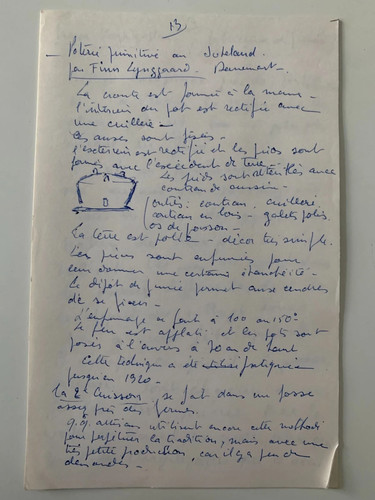 13
Poterie primitive au Juteland.
par Finn Lynggaard - Danemark.
La cruche est formée à la main -
l'intérieur du pot est rectifié avec
une cuillère -
Les anses sont fixées -
l'extérieur est rectifié et les pieds sont
formés avec l'excédent de terre -
Les pieds sont avec
couteau de cuisine -
outils: couteau, cuillère,
couteau en bois - galets polis,
os de poisson -
La terre est polie - décor très simple.
Les pièces sont enfumées pour
leur donner une certaine étanchéité -
Le dépôt de fumée permet aux cendres
de se fixer -
l'enfumage se fait à 100 ou 150°
Le feu est applati et les pots sont
posés à l'envers à 70 cm de haut
Cette technique a été utilisée
jusqu'en 1920 -
La 2e cuisson, se fait dans un fosse
assez près des fermes.
q.q. artisans utilisent encore cette méthode
pour perpétuer la tradition, mais avec une
très petite production, car il y a peu de
demandes -